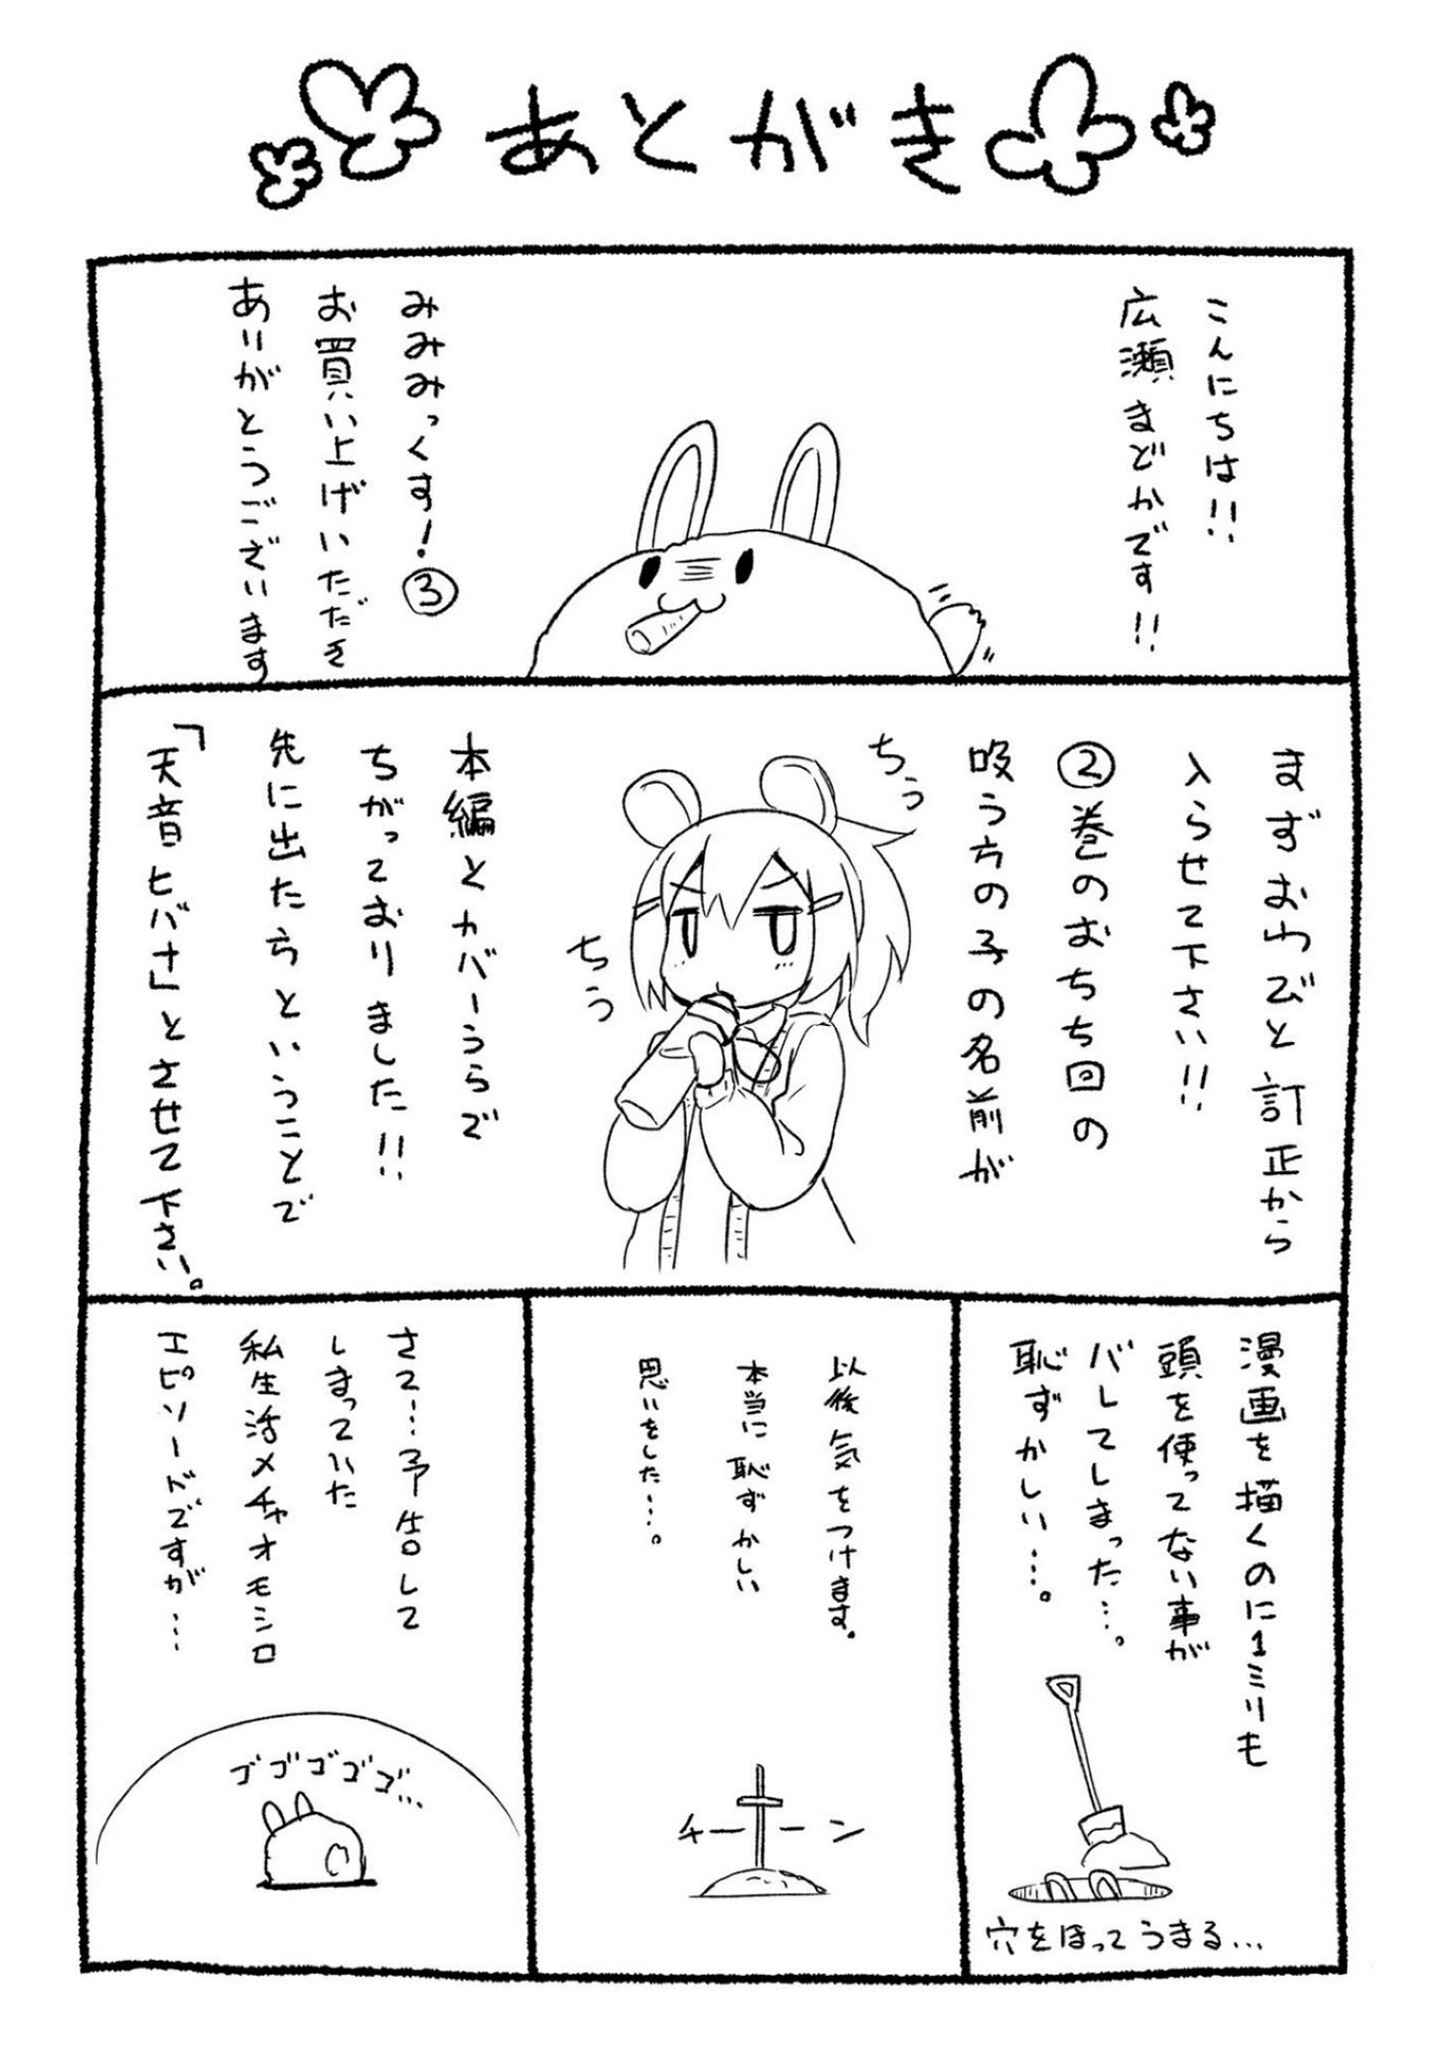 あとがき
こんにちは!!
広瀬まどかです!!
みみみっくす!③
お買い上げいただき
ありがとうございます
まずおわびと訂正から
入らせて下さい!!
②巻のおちち回の
吸う方の子の名前が
ちぅ
ちぅ
本編とカバーうらで
ちがっておりました!!
先に出たちということで
「天音ヒバナ」とさせて下さい。
漫画を描くのに1ミリも
頭を使ってない事が
バレてしまった…。
恥ずかしい…。
穴をほってうまる…
以後気をつけます。
本当に恥ずかしい
思いをした…。
チーーン
さて…予告して
しまっていた
私生活メチャオモシロ
エピソードですが…
ゴゴゴゴゴ…